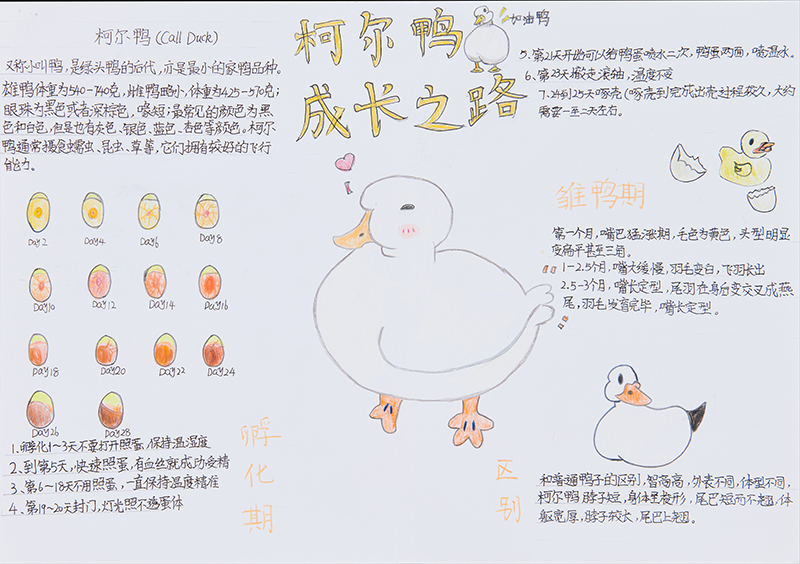 柯尔鸭
加油鸭
成长之路
柯尔鸭(Call Duck)
又称小叫鸭,是绿头鸭的后代,亦是最小的家鸭品种。
雄鸭体重为540-740克,雌鸭略小,体重为425-570克;
眼珠为黑色或者深棕色,喙短;最常见的颜色为黑
色和白色,但是也有灰色、银色、蓝色、杏色等颜色。柯尔
鸭通常摄食蠕虫、昆虫、草等,它们拥有较好的飞行
能力。
Day2
Day4
Day6
Day8
Day10
Day12
Day14
Day16
Day18
Day20
Day22
Day24
Day26
Day28
1、孵化1~3天不要打开照蛋,保持温湿度
2、到第5天,快速照蛋,有血丝就成功受精
3、第6~18天不用照蛋,一直保持温度精准
4、第19~20天封门,灯光照不透蛋体
孵化期
5、第21天开始可以给鸭蛋喷水二次,鸭蛋两面,喷温水。
6、第23天撤走滚轴,温度不变
7、24到25天啄壳(啄壳到完成出壳过程较久,大约
需要一至二天左右。
雏鸭期
第一个月,嘴巴猛涨期,毛色为黄色,头型明显
变扁平甚至三角。
1-2.5个月,嘴大缓慢,羽毛变白,飞羽长出
2.5-3个月,嘴长定型,尾羽在身后变交叉成燕
尾,羽毛发育完毕,嘴长定型。
区别
和普通鸭子的区别,智商高,外表不同,体型不同,
柯尔鸭脖子短,身体呈梭形,尾巴短而不翘,体
躯宽厚,脖子较长,尾巴上翘。